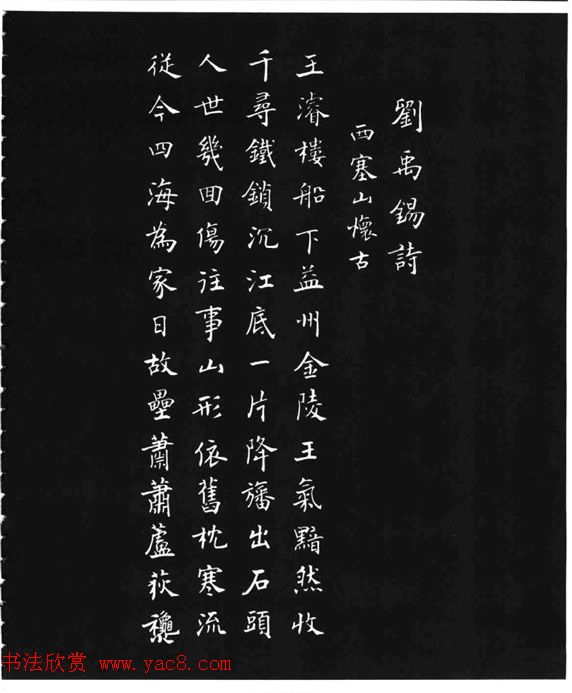 劉禹錫詩
西塞山懷古
王濬樓船下益州金陵王氣黯然收
千尋鐵鎖沉江底一片降旛出石頭
人世幾回傷往事山形依舊枕寒流
從今四海為家日故壘蕭蕭蘆荻穐
书法欣赏 www.yac8.com